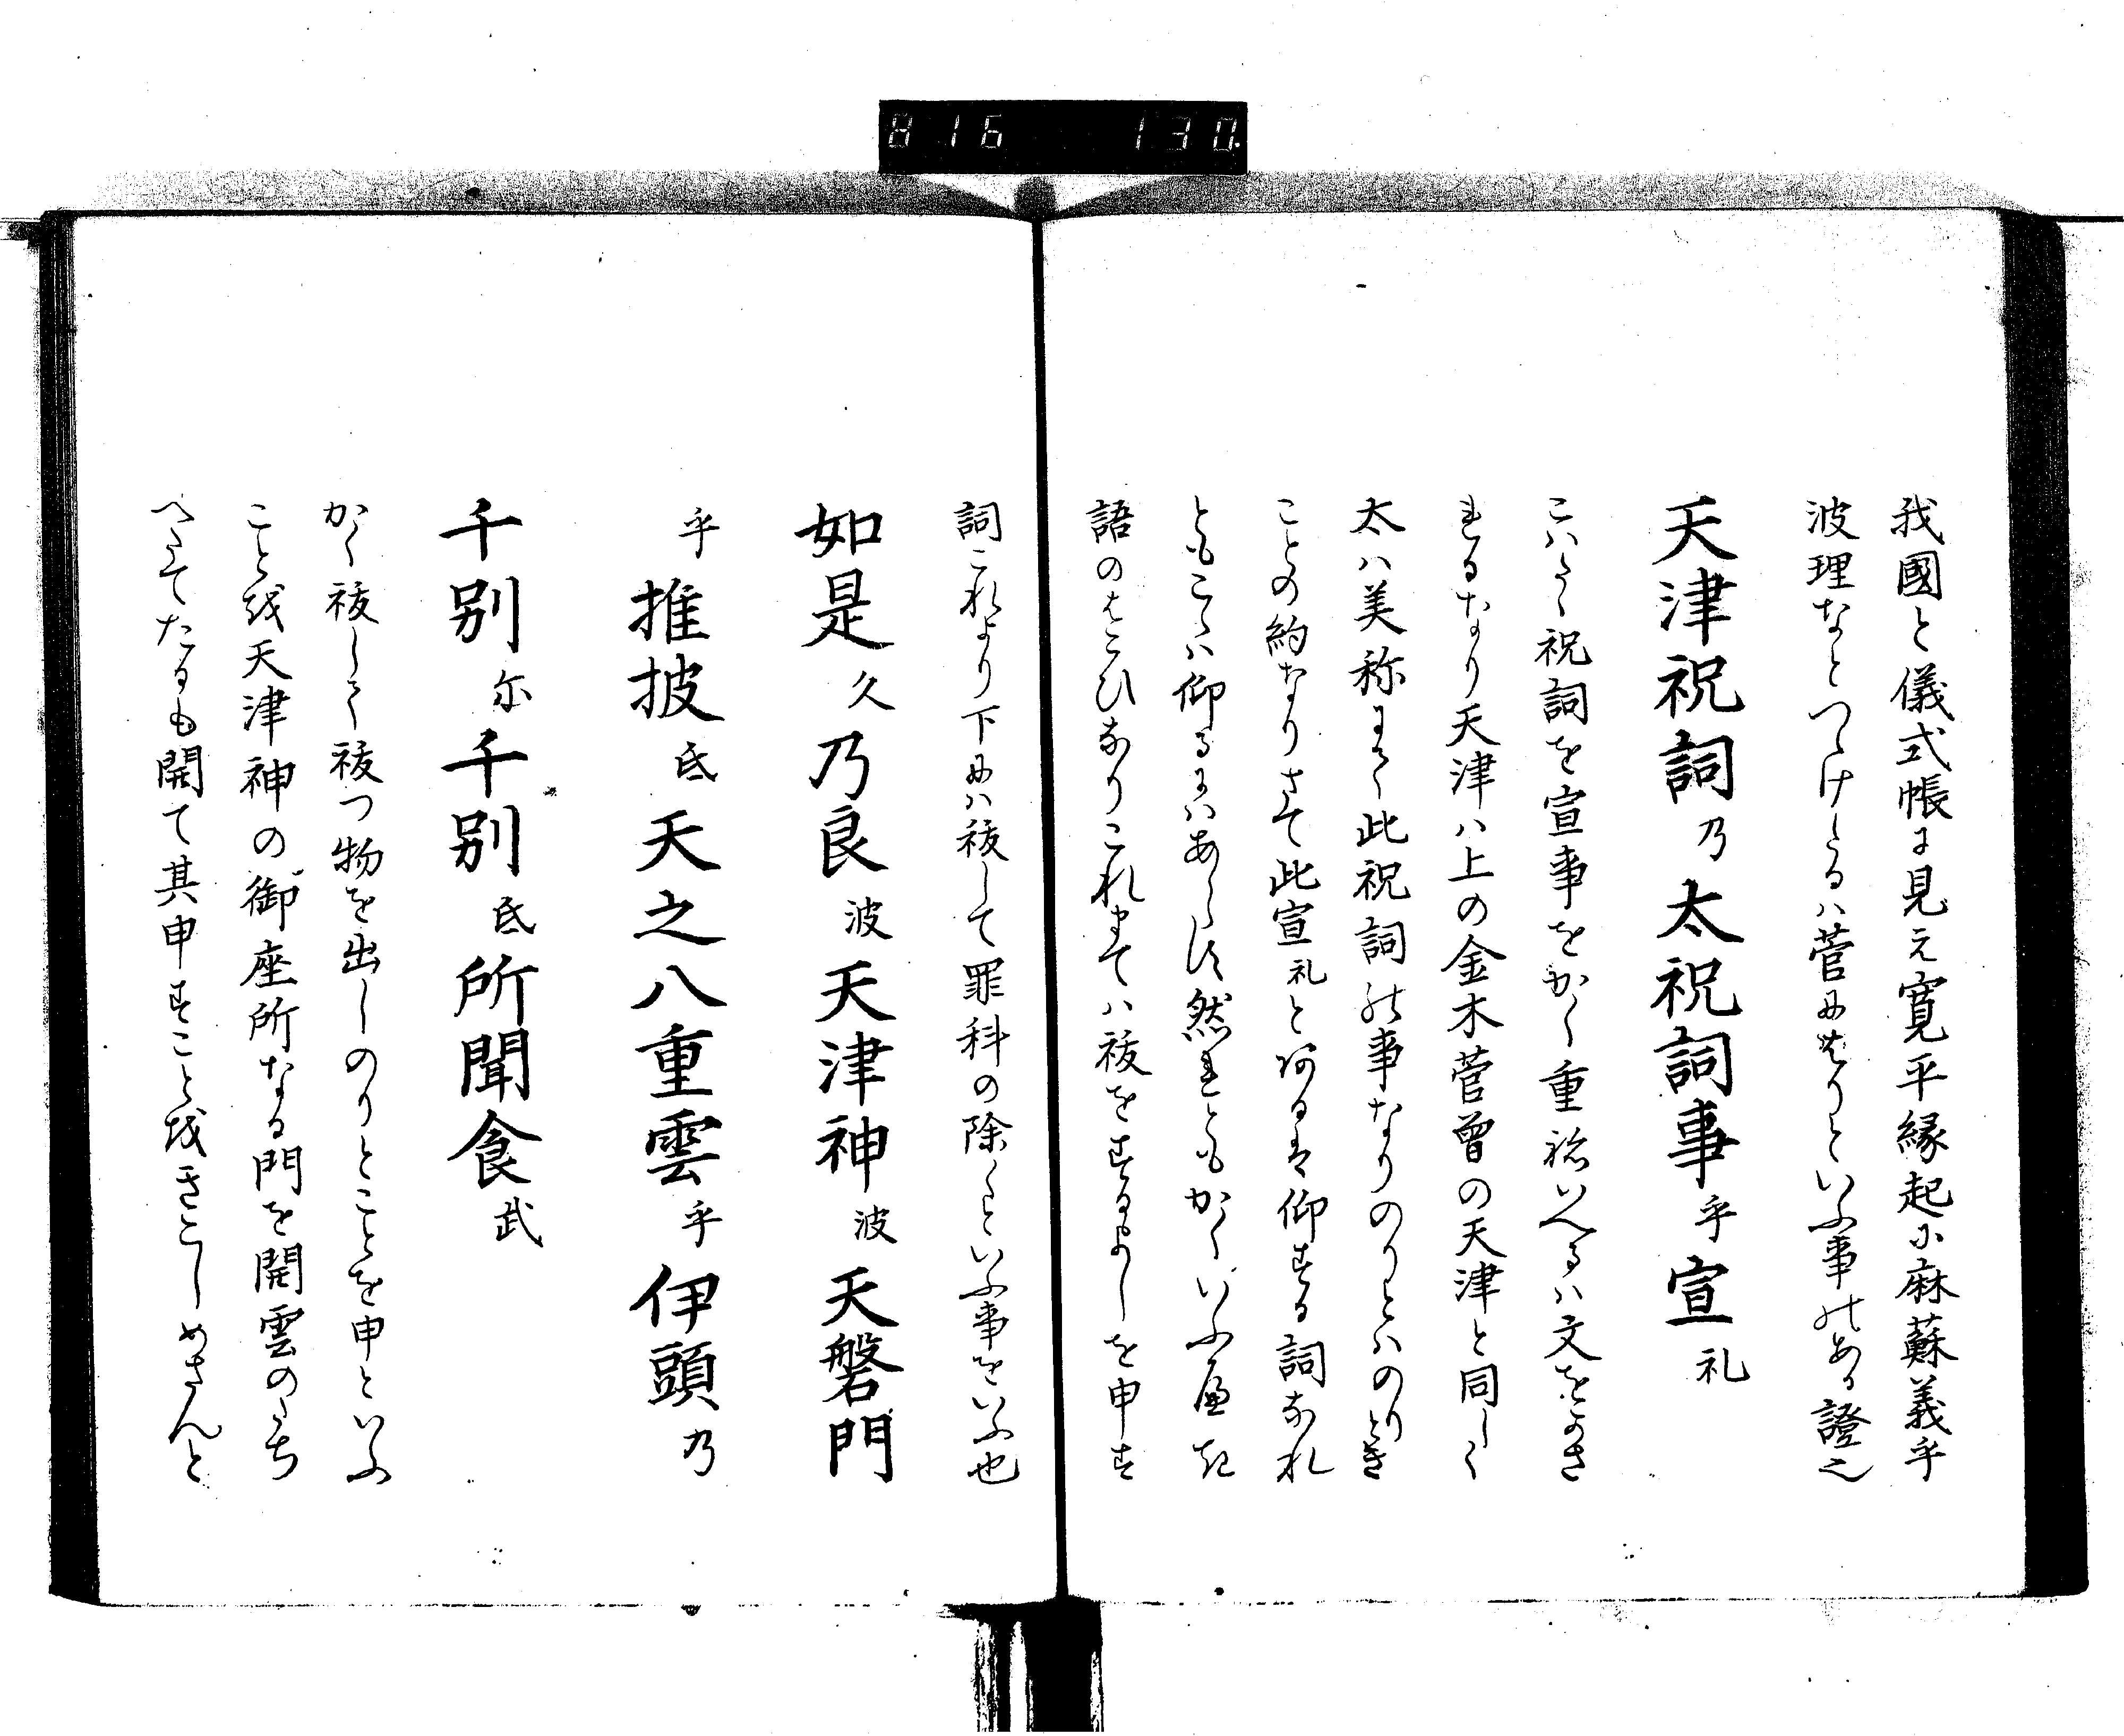 816 130.
我國と儀式帳に見え寛平縁起に麻蘇義乎
波理なとつゝけたるは菅にはりといふ事のある證也
天津祝詞乃太祝詞事乎宣礼
こはたゝ祝詞を宣事をかく重ねいへるは文をなさ
れるなり天津は上の金木菅曽の天津と同しく
太は美称にて此祝詞の事なりのりとはのりとき
ことの約なりさて此宣礼とあるは仰する詞なれ
ともこゝは仰るにはあらす然れともかくいふ
語のはこひなりこれまては祓をするよしを申す
詞これより下には祓して罪科の除くといふ事をいふ也
如是久乃良波天津神波天磐門
乎推披氐天之八重雲乎伊頭乃
千別尓千別氐所聞食武
かく祓して祓つ物を出しのりとことを申といふ
こと越天津神の御座所なる門を開雲のたち
へたてたるも開て其申すこと越きこしめさんと